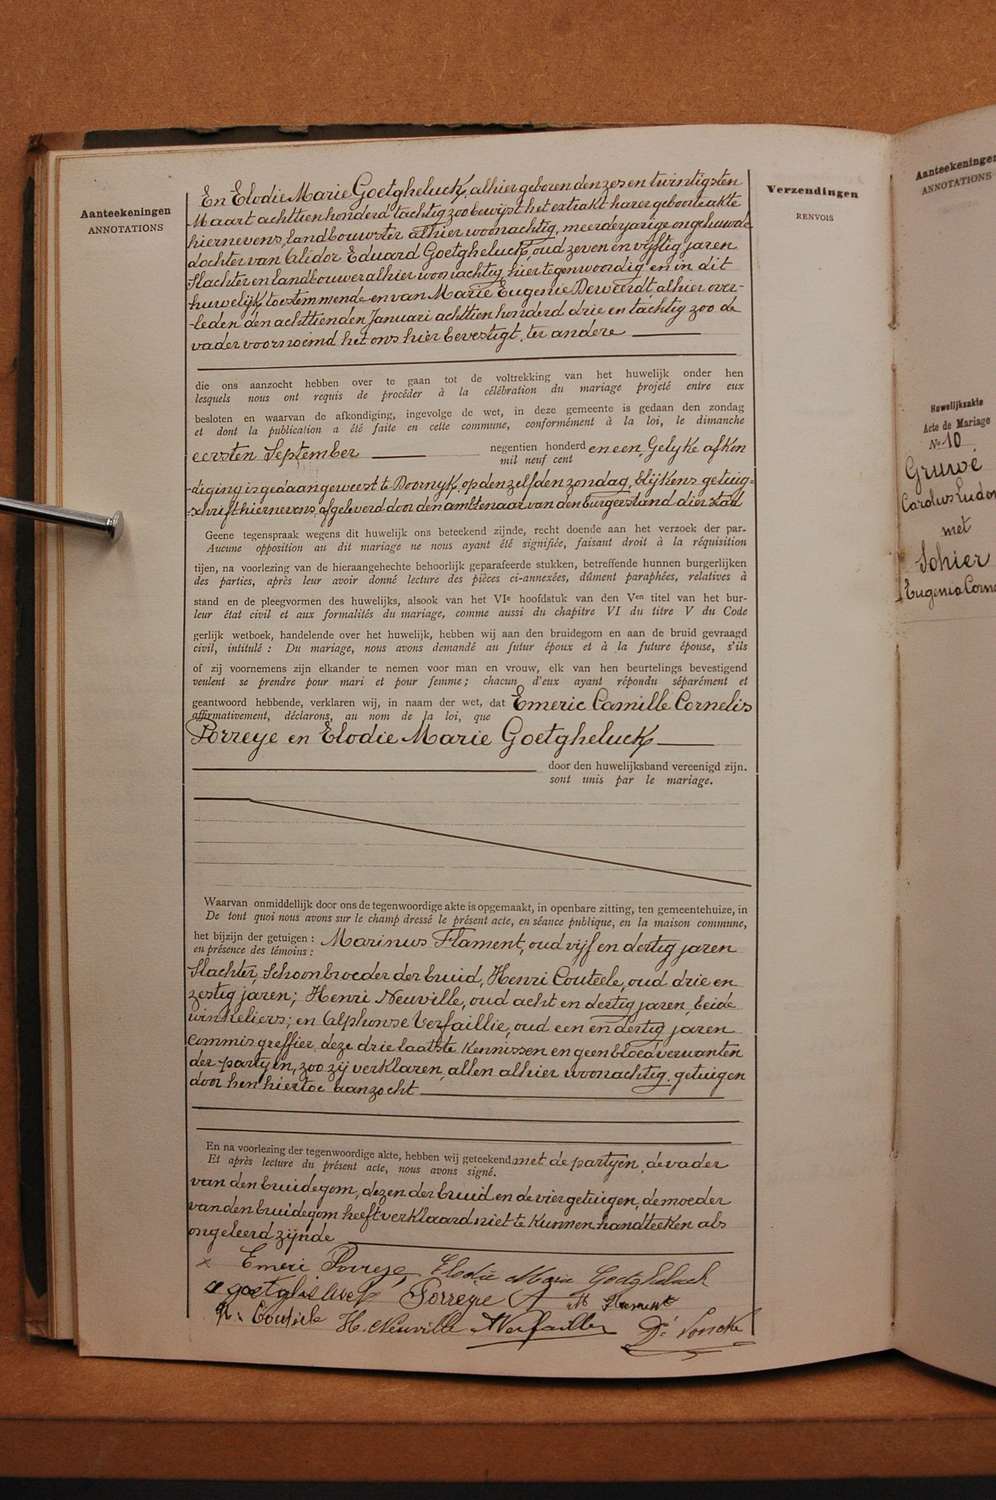 Aanteekeningen
ANNOTATIONS
Verzendingen
RENVOIS
En Elodie Marie Goetgheluck, alhier geboren den zes en twintigsten
Maart achttien honderd tachtig zoo bewijst het extrakt harer geboorteakte
hiernevens, landbouwster alhier woonachtig, meerderjarige ongehuwde
dochter van Alidor Eduard Goetgheluck, oud zeven en vijftig jaren
slachter en landbouwer alhier woonachtig, hier tegenwoordig en in dit
huwelijk toestemmende en van Marie Eugenie Dewerdt alhier over-
-leden den achttienden Januari achttien honderd drie en tachtig zoo de
vader voornoemd het ons hier bevestigt, ter andere
die ons aanzocht hebben over te gaan tot de voltrekking van het huwelijk onder hen
lesquels nous ont requis de procéder à la célébration du mariage projeté entre eux
besloten en waarvan de afkondiging, ingevolge de wet, in deze gemeente is gedaan den zondag
et dont la publication a été faite en cette commune, conformément à la loi, le dimanche
eersten September negentien honderd en een, Gelijke afkon
mil neuf cent
-diging is gedaan geweest te Doornyk, op denzelfden zondag, blijkens getuig-
-schrift hiernevens, afgeleverd door den ambtenaar van den burgerstand dier stad
Geene tegenspraak wegens dit huwelijk ons beteekend zijnde, recht doende aan het verzoek der par-
Aucune opposition au dit mariage ne nous ayant été signifiée, faisant droit à la réquisition
tijen, na voorlezing van de hieraangehechte behoorlijk geparafeerde stukken, betreffende hunnen burgerlijken
des parties, après leur avoir donné lecture des pièces ci-annexées, dûment paraphées, relatives à
stand en de pleegvormen des huwelijks, alsook van het VIe hoofdstuk van den Ven titel van het bur-
leur état civil et aux formalités du mariage, comme aussi du chapitre VI du titre V du Code
gerlijk wetboek, handelende over het huwelijk, hebben wij aan den bruidegom en aan de bruid gevraagd
civil, intitulé : Du mariage, nous avons demandé au futur époux et à la future épouse, s'ils
of zij voornemens zijn elkander te nemen voor man en vrouw, elk van hen beurtelings bevestigend
veulent se prendre pour mari et pour femme ; chacun d'eux ayant répondu séparément et
geantwoord hebbende, verklaren wij, in naam der wet, dat Emeric Camille Cornelis
affirmativement, déclarons, au nom de la loi, que
Porreye en Elodie Marie Goetgheluck
door den huwelijksband vereenigd zijn.
sont unis par le mariage.
Waarvan onmiddellijk door ons de tegenwoordige akte is opgemaakt, in openbare zitting, ten gemeentehuize, in
De tout quoi nous avons sur le champ dressé le présent acte, en séance publique, en la maison commune,
het bijzijn der getuigen : Marinus Flament, oud vijf en dertig jaren
en présence des témoins :
slachter, schoonbroeder der bruid, Henri Couteele, oud drie en
zestig jaren; Henri Neuville, oud acht en dertig jaren, beide
winkeliers; en Alphonse Verfaillie, oud een en dertig jaren
commis greffier, deze drie laatste kennissen en geen bloedverwanten
der partijen, zoo zij verklaren, allen alhier woonachtig, getuigen
door hen hiertoe aanzocht
En na voorlezing der tegenwoordige akte, hebben wij geteekend met de partyen, de vader
Et après lecture du présent acte, nous avons signé.
van den bruidegom, dezen der bruid en de vier getuigen, de moeder
van den bruidegom heeft verklaard niet te kunnen handteeken als
ongeleerd zijnde
x Emeri Porreye Elodie Marie Goetgheluck
Goetgheluck Porreye M Flament
H. Couteele H. Neuville AVerfaillie Dé Voncke
Aanteekeningen
ANNOTATIONS
Huwelijksakte
Acte de Mariage
No 10
Gruwé
Carolus Ludov
met
Sohier
Eugenia Corne